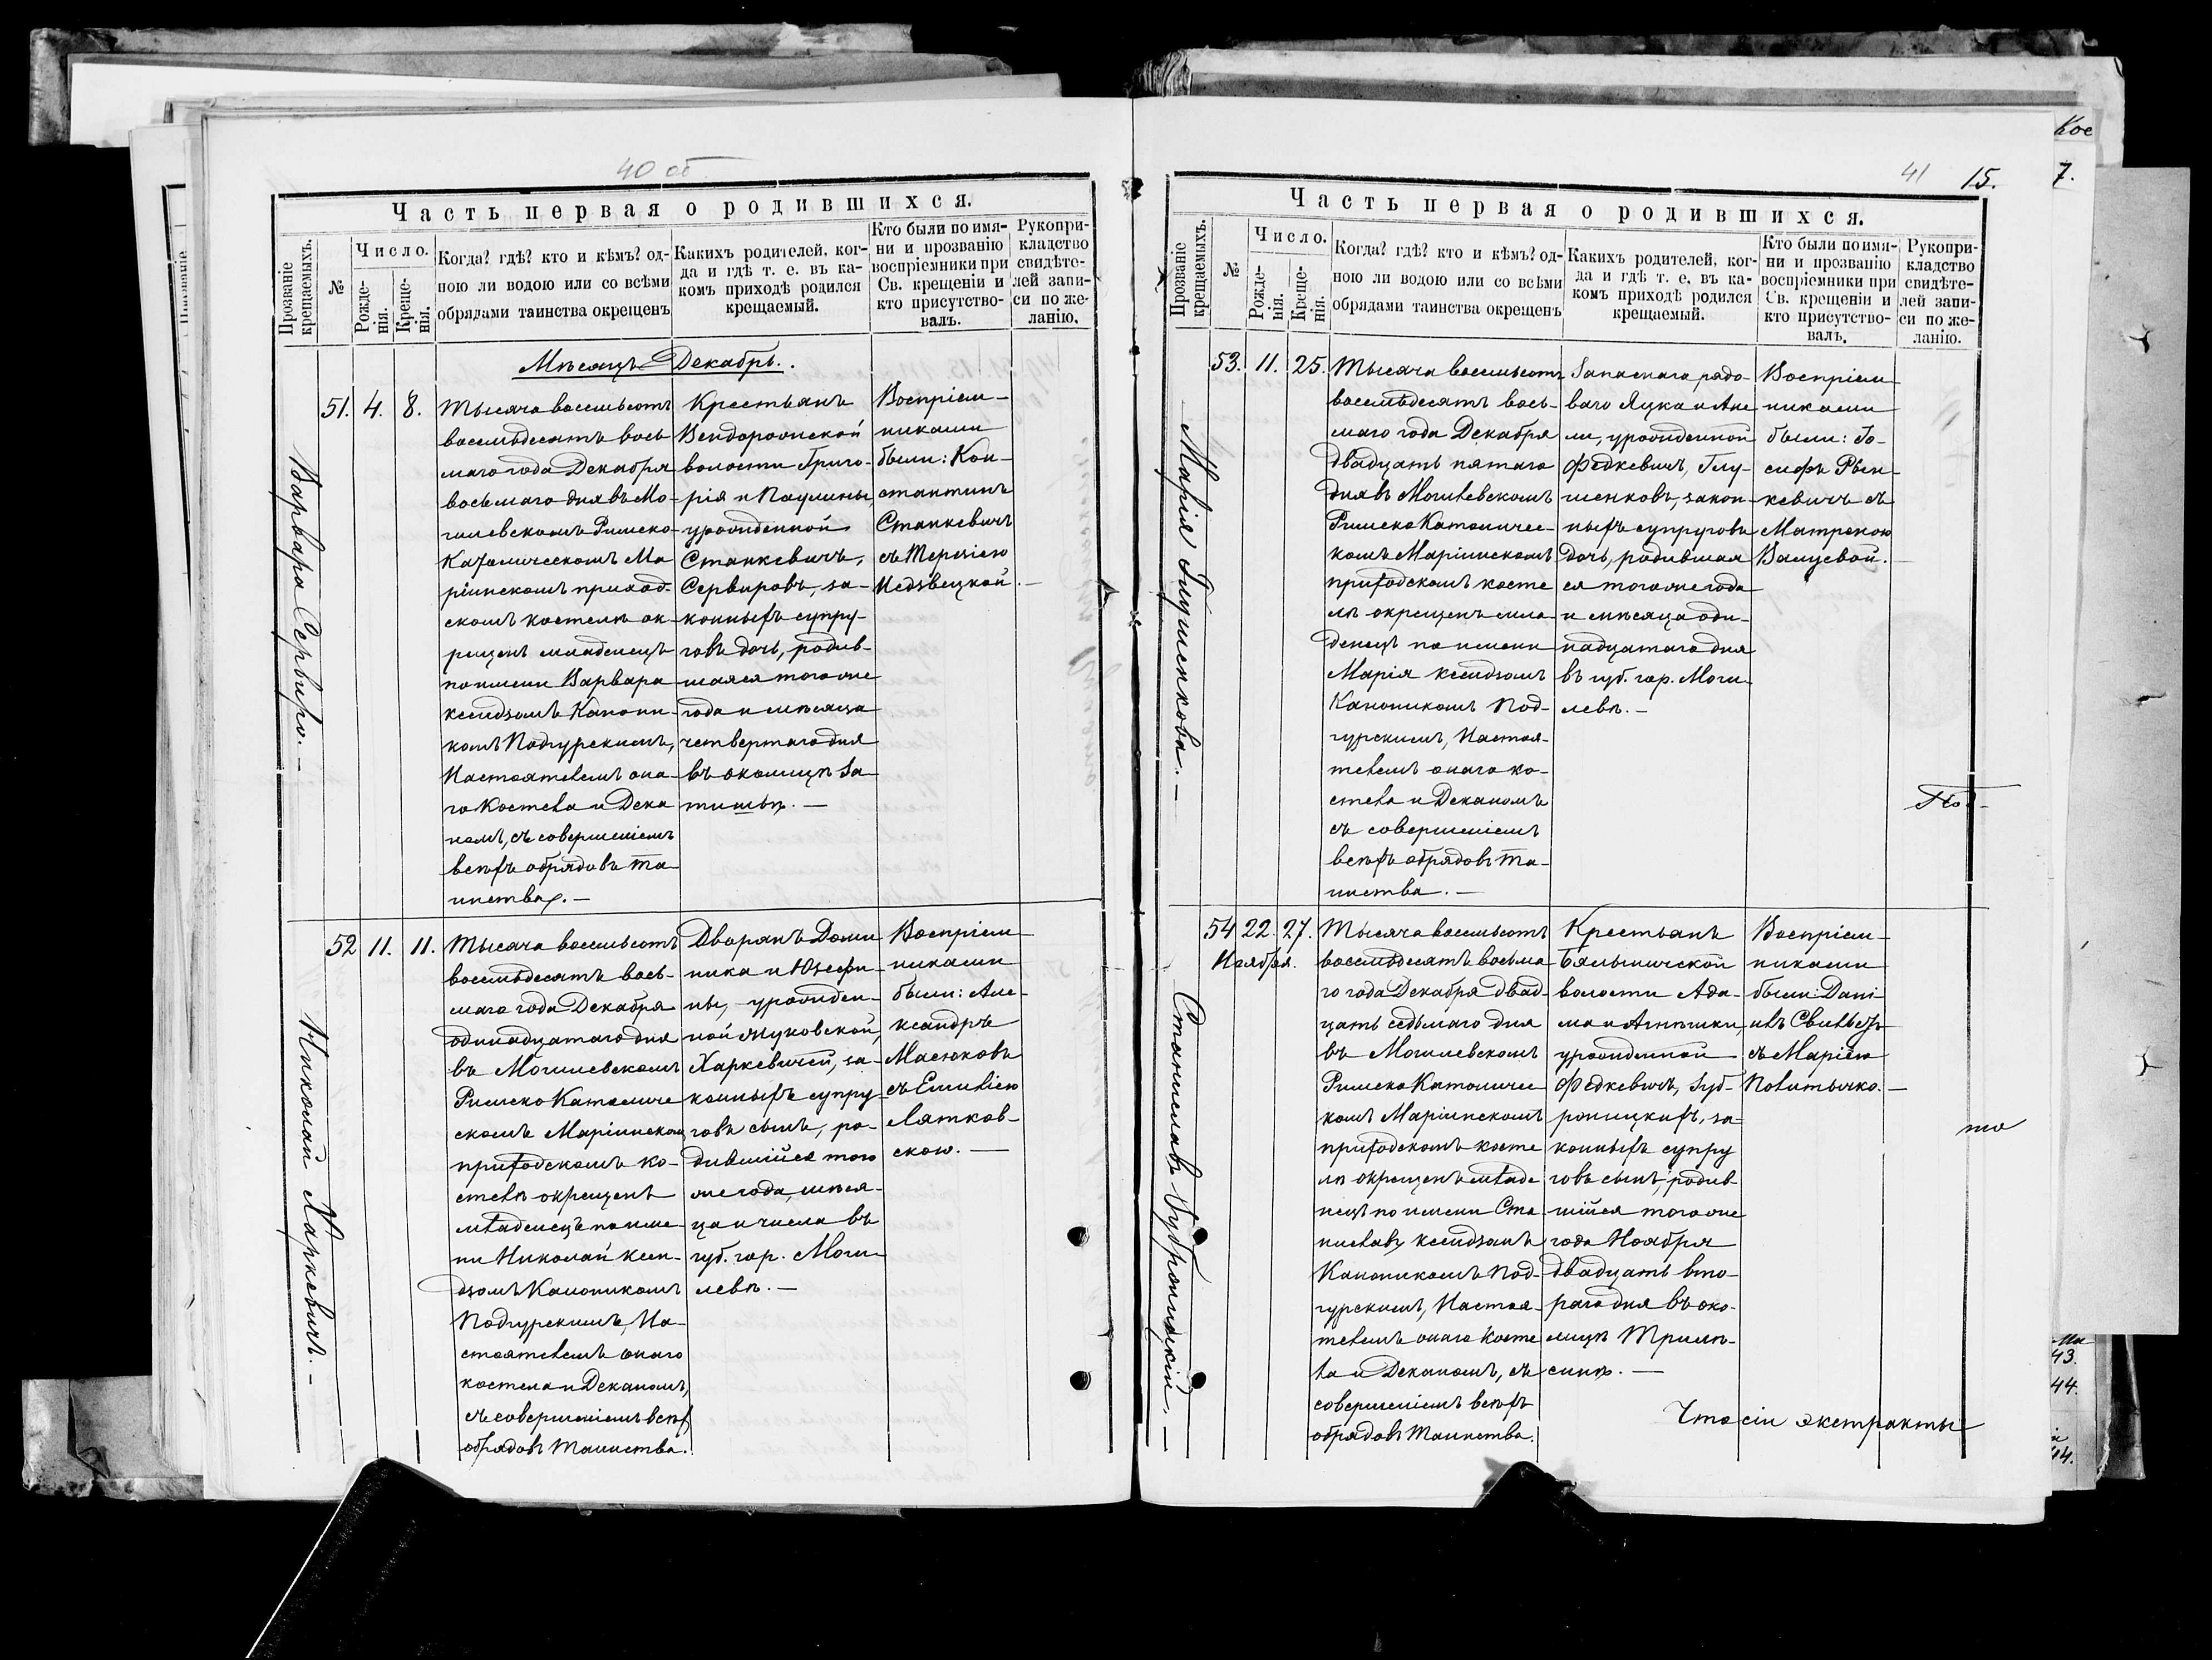 40 об
Часть первая о родившихся.
Прозваніе крещаемыхъ.
№
Число.
Рожде-
нія.
Креще-
нія.
Когда? гдѣ? кто и кѣмъ? од-
ною ли водою или со всѣми
обрядами таинства окрещенъ
Какихъ родителей, ког-
да и гдѣ т. е. въ ка-
комъ приходѣ родился
крещаемый.
Кто были по имя-
ни и прозванію
воспріемники при
Св. крещеніи и
кто присутство-
валъ.
Рукопри-
кладство
свидѣте-
лей запи-
си по же-
ланію.
Мѣсяцъ Декабрь.
Варвара Сервиро. —
51. 4. 8.
Тысяча восемьсотъ
восемьдесятъ вось
маго года Декабря
восьмаго дня въ Мо-
гилевскомъ Римско-
Католическомъ Ма
ріинскомъ приход-
скомъ костелѣ ок-
рещенъ младенецъ
по имени Варвара
ксендзомъ Канони-
комъ Подгурскимъ,
Настоятелемъ она-
го Костела и Дека
номъ, съ совершеніемъ
всѣхъ обрядовъ та-
инства. —
Крестьянъ
Вендорожской
волости Григо-
рія и Паулины,
урожденной
Станкевичъ,
Сервировъ, за-
конныхъ супру-
говъ дочь, родив-
шаяся того же
года и мѣсяца
четвертаго дня
въ околицѣ За
тишьѣ. —
Воспріем-
никами
были: Кон-
стантинъ
Станкевичъ
съ Терезіею
Недзвецкой. —
Николай Харкевичъ. —
52 11. 11.
Тысяча восемьсотъ
восемьдесятъ вось-
маго года Декабря
одинадцатаго дня
въ Могилевскомъ
Римско Католиче
скомъ Маріинском
приходскомъ ко-
стелѣ окрещенъ
младенецъ по име-
ни Николай ксен-
дзомъ Каноникомъ
Подгурскимъ, На-
стоятелемъ онаго
костела и Деканомъ,
съ совершеніемъ всѣх
обрядовъ Таинства.
Дворянъ Доми
ника и Юзефи-
ны, урожден-
ной Жуковской,
Харкевичей, за-
конныхъ супру-
говъ сынъ, ро-
дившійся того
же года, мѣся-
ца и числа въ
губ. гор. Моги-
левѣ. —
Воспріем-
никами
были: Але-
ксандръ
Масюковъ
съ Емиліею
Лятков-
скою. —
41 15.
Часть первая о родившихся.
Прозваніе крещаемыхъ.
№
Число.
Рожде-
нія.
Креще-
нія.
Когда? гдѣ? кто и кѣмъ? од-
ною ли водою или со всѣми
обрядами таинства окрещенъ
Какихъ родителей, ког-
да и гдѣ т. е. въ ка-
комъ приходѣ родился
крещаемый.
Кто были по имя-
ни и прозванію
воспріемники при
Св. крещеніи и
кто присутство-
валъ.
Рукопри-
кладство
свидѣте-
лей запи-
си по же-
ланію.
Марія Глушенкова. —
53. 11. 25.
Тысяча восемьсотъ
восемьдесятъ вось-
маго года Декабря
двадцать пятаго
дня въ Могилевскомъ
Римско Католичес-
комъ Маріинскомъ
приходскомъ косте
лѣ окрещенъ мла-
денецъ по имени
Марія ксендзомъ
Каноникомъ Под-
гурскимъ, Настоя-
телемъ онаго ко-
стела и Деканомъ
съ совершеніемъ
всѣхъ обрядовъ та-
инства. —
Запаснаго рядо-
ваго Яцка и Ане
ли, урожденной
Федкевичъ, Глу-
шенковъ, закон-
ныхъ супруговъ
дочь, родившая
ся того же года
и мѣсяца оди-
надцатаго дня
въ губ. гор. Моги-
левѣ. —
Воспріем
никами
были: Іо-
сифъ Рын-
кевичъ съ
Матреною
Валуевой. —
Станиславъ Зуброницкій. —
54 22. 27.
Ноября.
Тысяча восемьсотъ
восемьдесятъ восьма
го года Декабря двад-
цать седьмаго дня
въ Могилевскомъ
Римско Католичес
комъ Маріинскомъ
приходскомъ косте
лѣ окрещенъ младе
нецъ по имени Ста-
ниславъ ксендзомъ
Каноникомъ Под-
гурскимъ, Настоя-
телемъ онаго Косте
ла и Деканомъ, съ
совершеніемъ всѣхъ
обрядовъ Таинства.
Крестьянъ
Бялыничской
волости Ада-
ма и Агнѣшки,
урожденной
Федкевичъ, Зуб-
роницкихъ, за-
конныхъ супру
говъ сынъ, родив-
шійся того же
года Ноября
двадцать вто-
раго дня въ око-
лицѣ Трилѣ-
синѣ. —
Воспріем-
никами
были: Дані-
илъ
съ Маріею
Политычко. —
Что сіи экстракты
то